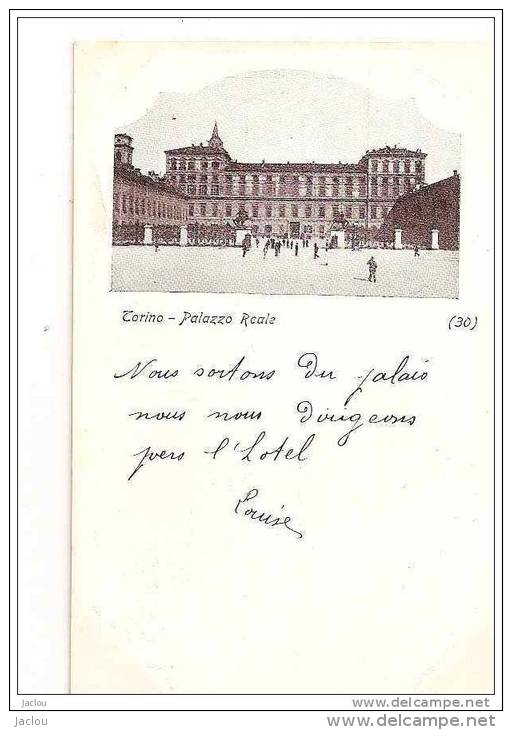 Torino - Palazzo Reale (30)
Nous sortons du palais
nous nous dirigeons
vers l'hotel
Louise
Jaclou www.delcampe.net
Jaclou www.delcampe.net